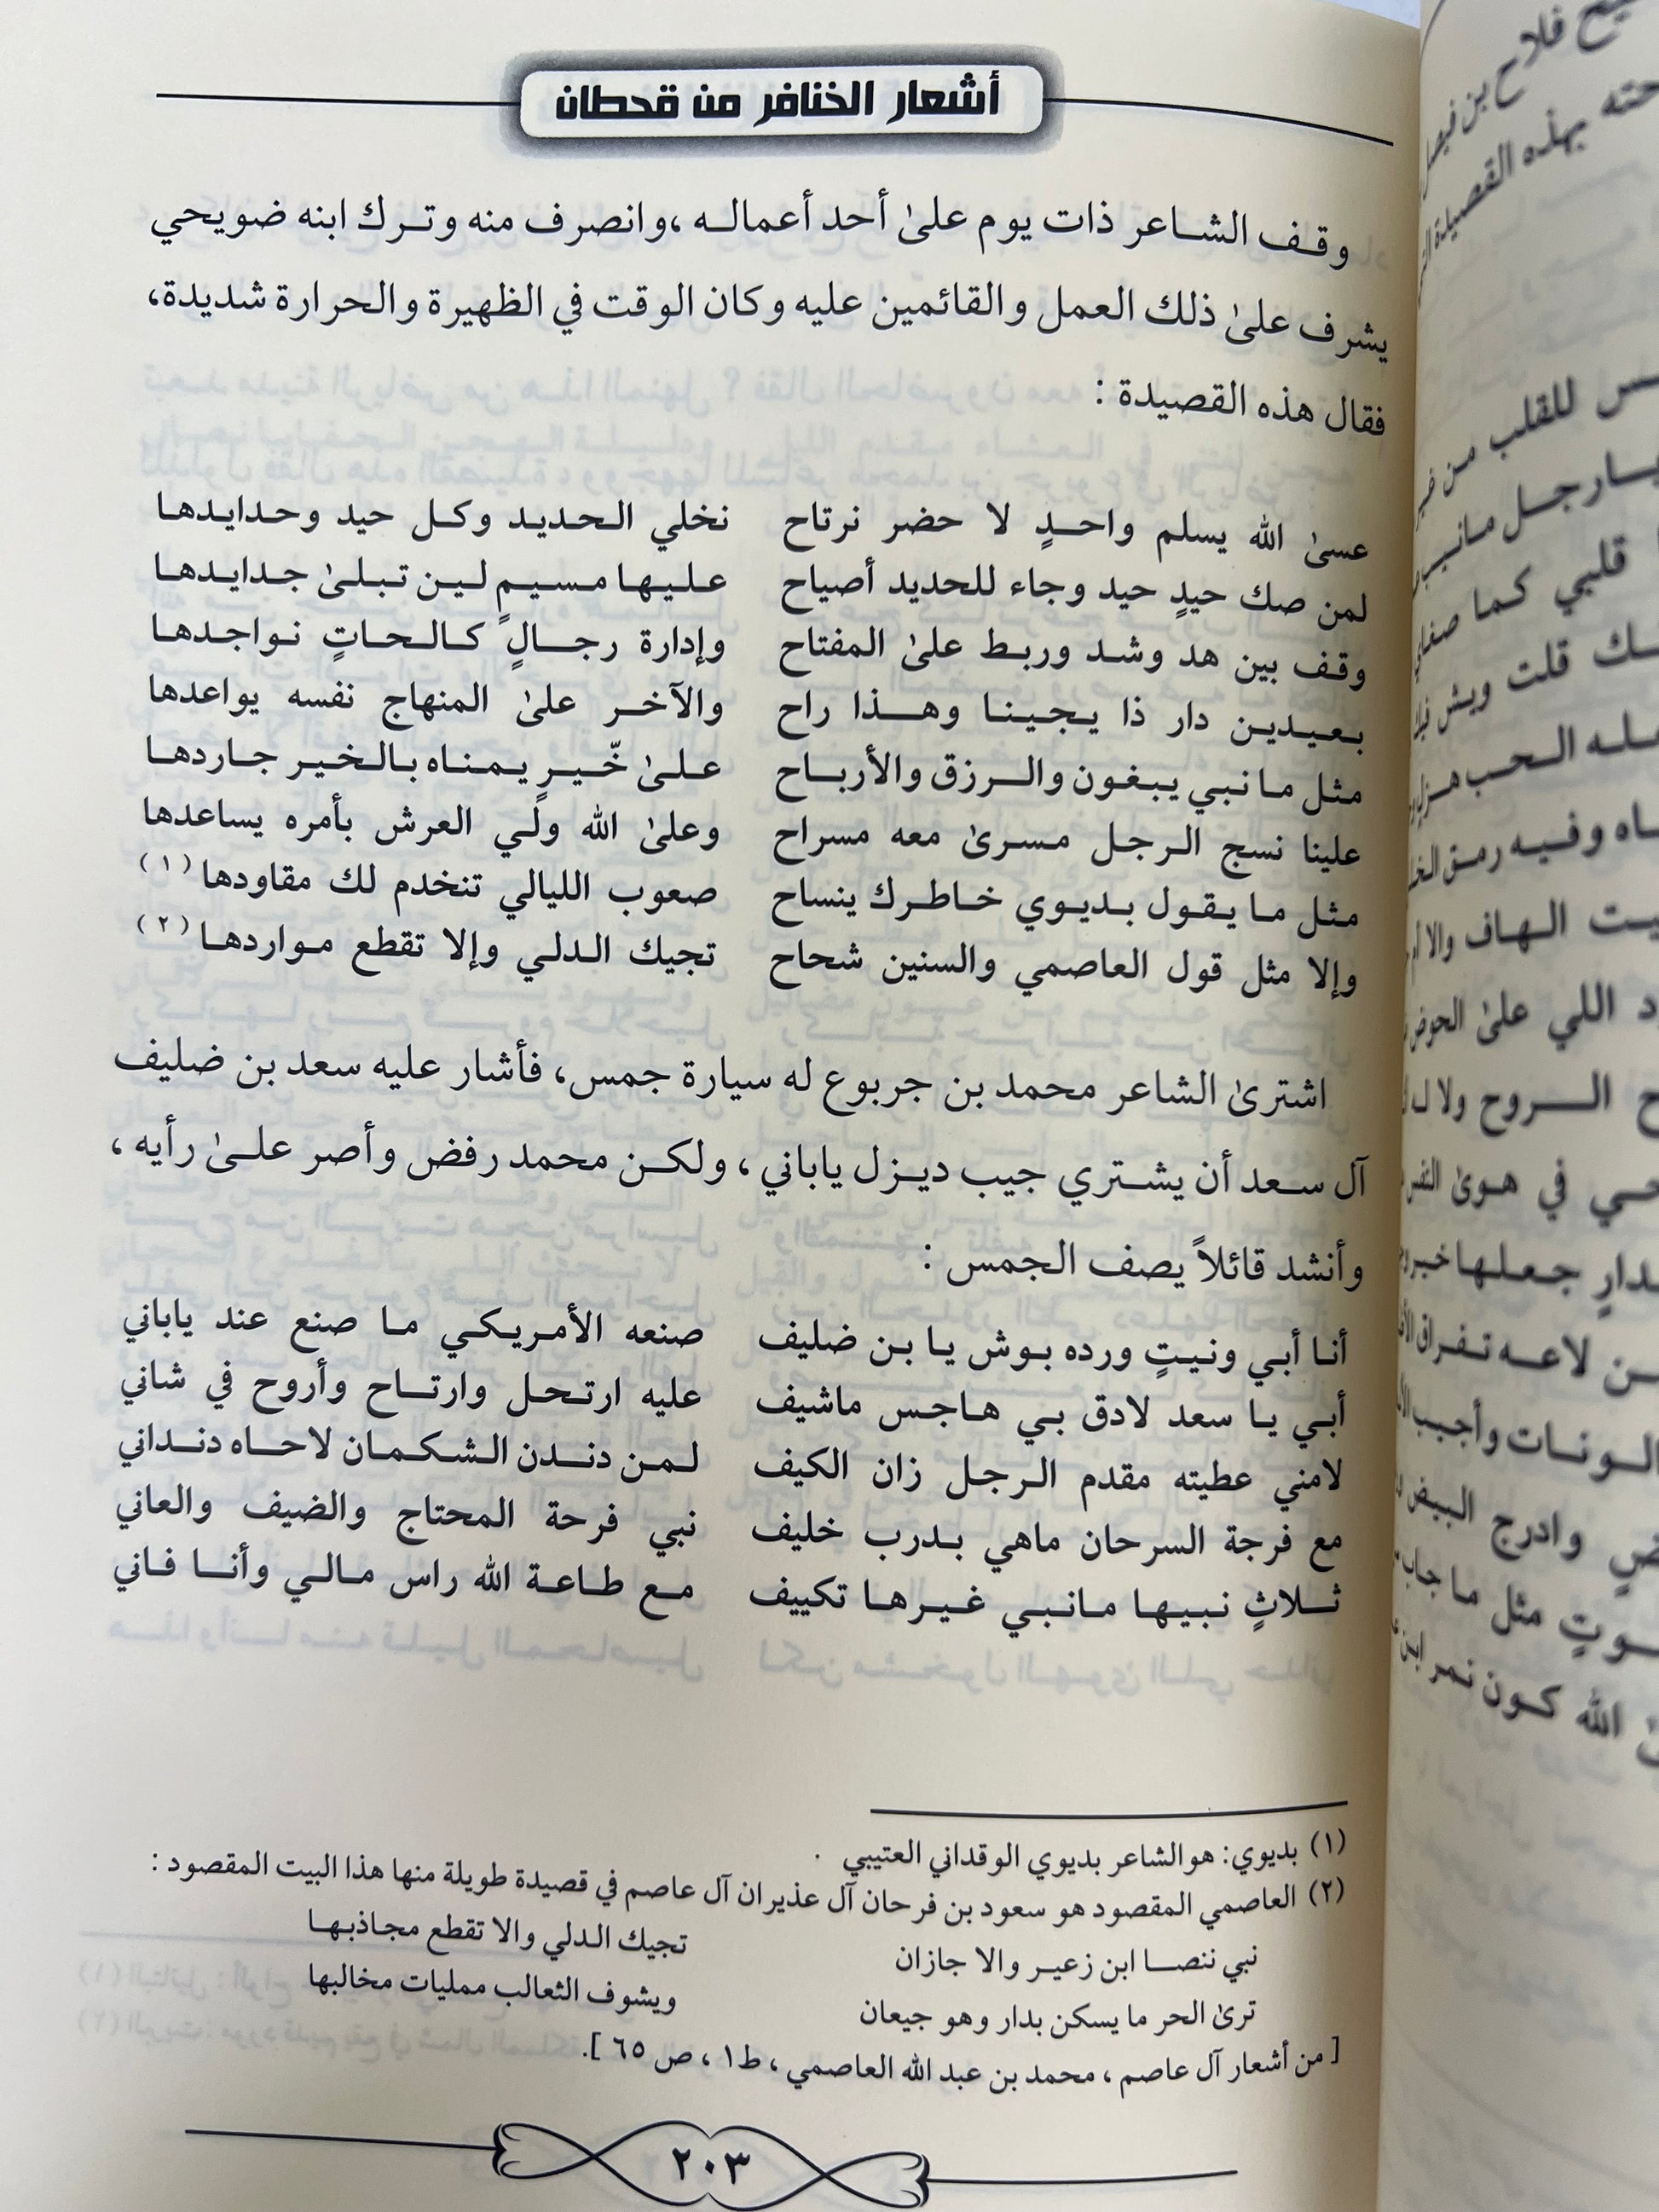 أشعار الخنافر من قحطان
وقف الشاعر ذات يوم علىٰ أحد أعماله ،وانصرف منه وترك ابنه ضويحي
يشرف علىٰ ذلك العمل والقائمين عليه وكان الوقت في الظهيرة والحرارة شديدة،
فقال هذه القصيدة :
عسىٰ الله يسلم واحدٍ لا حضر نرتاح نخلي الحديد وكل حيد وحدايدها
لمن صك حيدٍ حيد وجاء للحديد أصياح عليها مسيمٍ لين تبلىٰ جدايدها
وقف بين هد وشد وربط علىٰ المفتاح وإدارة رجالٍ كالحاتٍ نواجدها
بعيدين دار ذا يجينا وهذا راح والآخر علىٰ المنهاج نفسه يواعدها
مثل مانبي يبغون والرزق والأرباح علىٰ خّيرٍ يمناه بالخير جاردها
علينا نسج الرجل مسرىٰ معه مسراح وعلىٰ الله ولّي العرش بأمره يساعدها
مثل ما يقول بديوي خاطرك ينساح صعوب الليالي تنخدم لك مقاودها (١)
وإلا مثل قول العاصمي والسنين شحاح تجيك الدلي وإلا تقطع مواردها (٢)
اشترىٰ الشاعر محمد بن جربوع له سيارة جمس، فأشار عليه سعد بن ضليف
آل سعد أن يشتري جيب ديزل ياباني ، ولكن محمد رفض وأصر علىٰ رأيه ،
وأنشد قائلاً يصف الجمس :
أنا أبي ونيتٍ ورده بوش يا بن ضليف صنعه الأمريكي ما صنع عند ياباني
أبي يا سعد لادق بي هاجس ماشيف عليه ارتحل وارتاح وأروح في شاني
لامني عطيته مقدم الرجل زان الكيف لمن دندن الشكمان لاحاه دنداني
مع فرجة السرحان ماهي بدرب خليف نبي فرحة المحتاج والضيف والعاني
ثلاثٍ نبيها مانبي غيرها تكييف مع طاعة الله راس مالي وأنا فاني
(١) بديوي: هوالشاعر بديوي الوقداني العتيبي .
(٢) العاصمي المقصود هو سعود بن فرحان آل عذيران آل عاصم في قصيدة طويلة منها هذا البيت المقصود :
نبي ننصا ابن زعير والا جازان تجيك الدلي والا تقطع مجاذبها
ترىٰ الحر ما يسكن بدار وهو جيعان ويشوف الثعالب ممليات مخالبها
[من أشعار آل عاصم ، محمد بن عبد الله العاصمي ، ط١ ، ص ٦٥].
٢٠٣